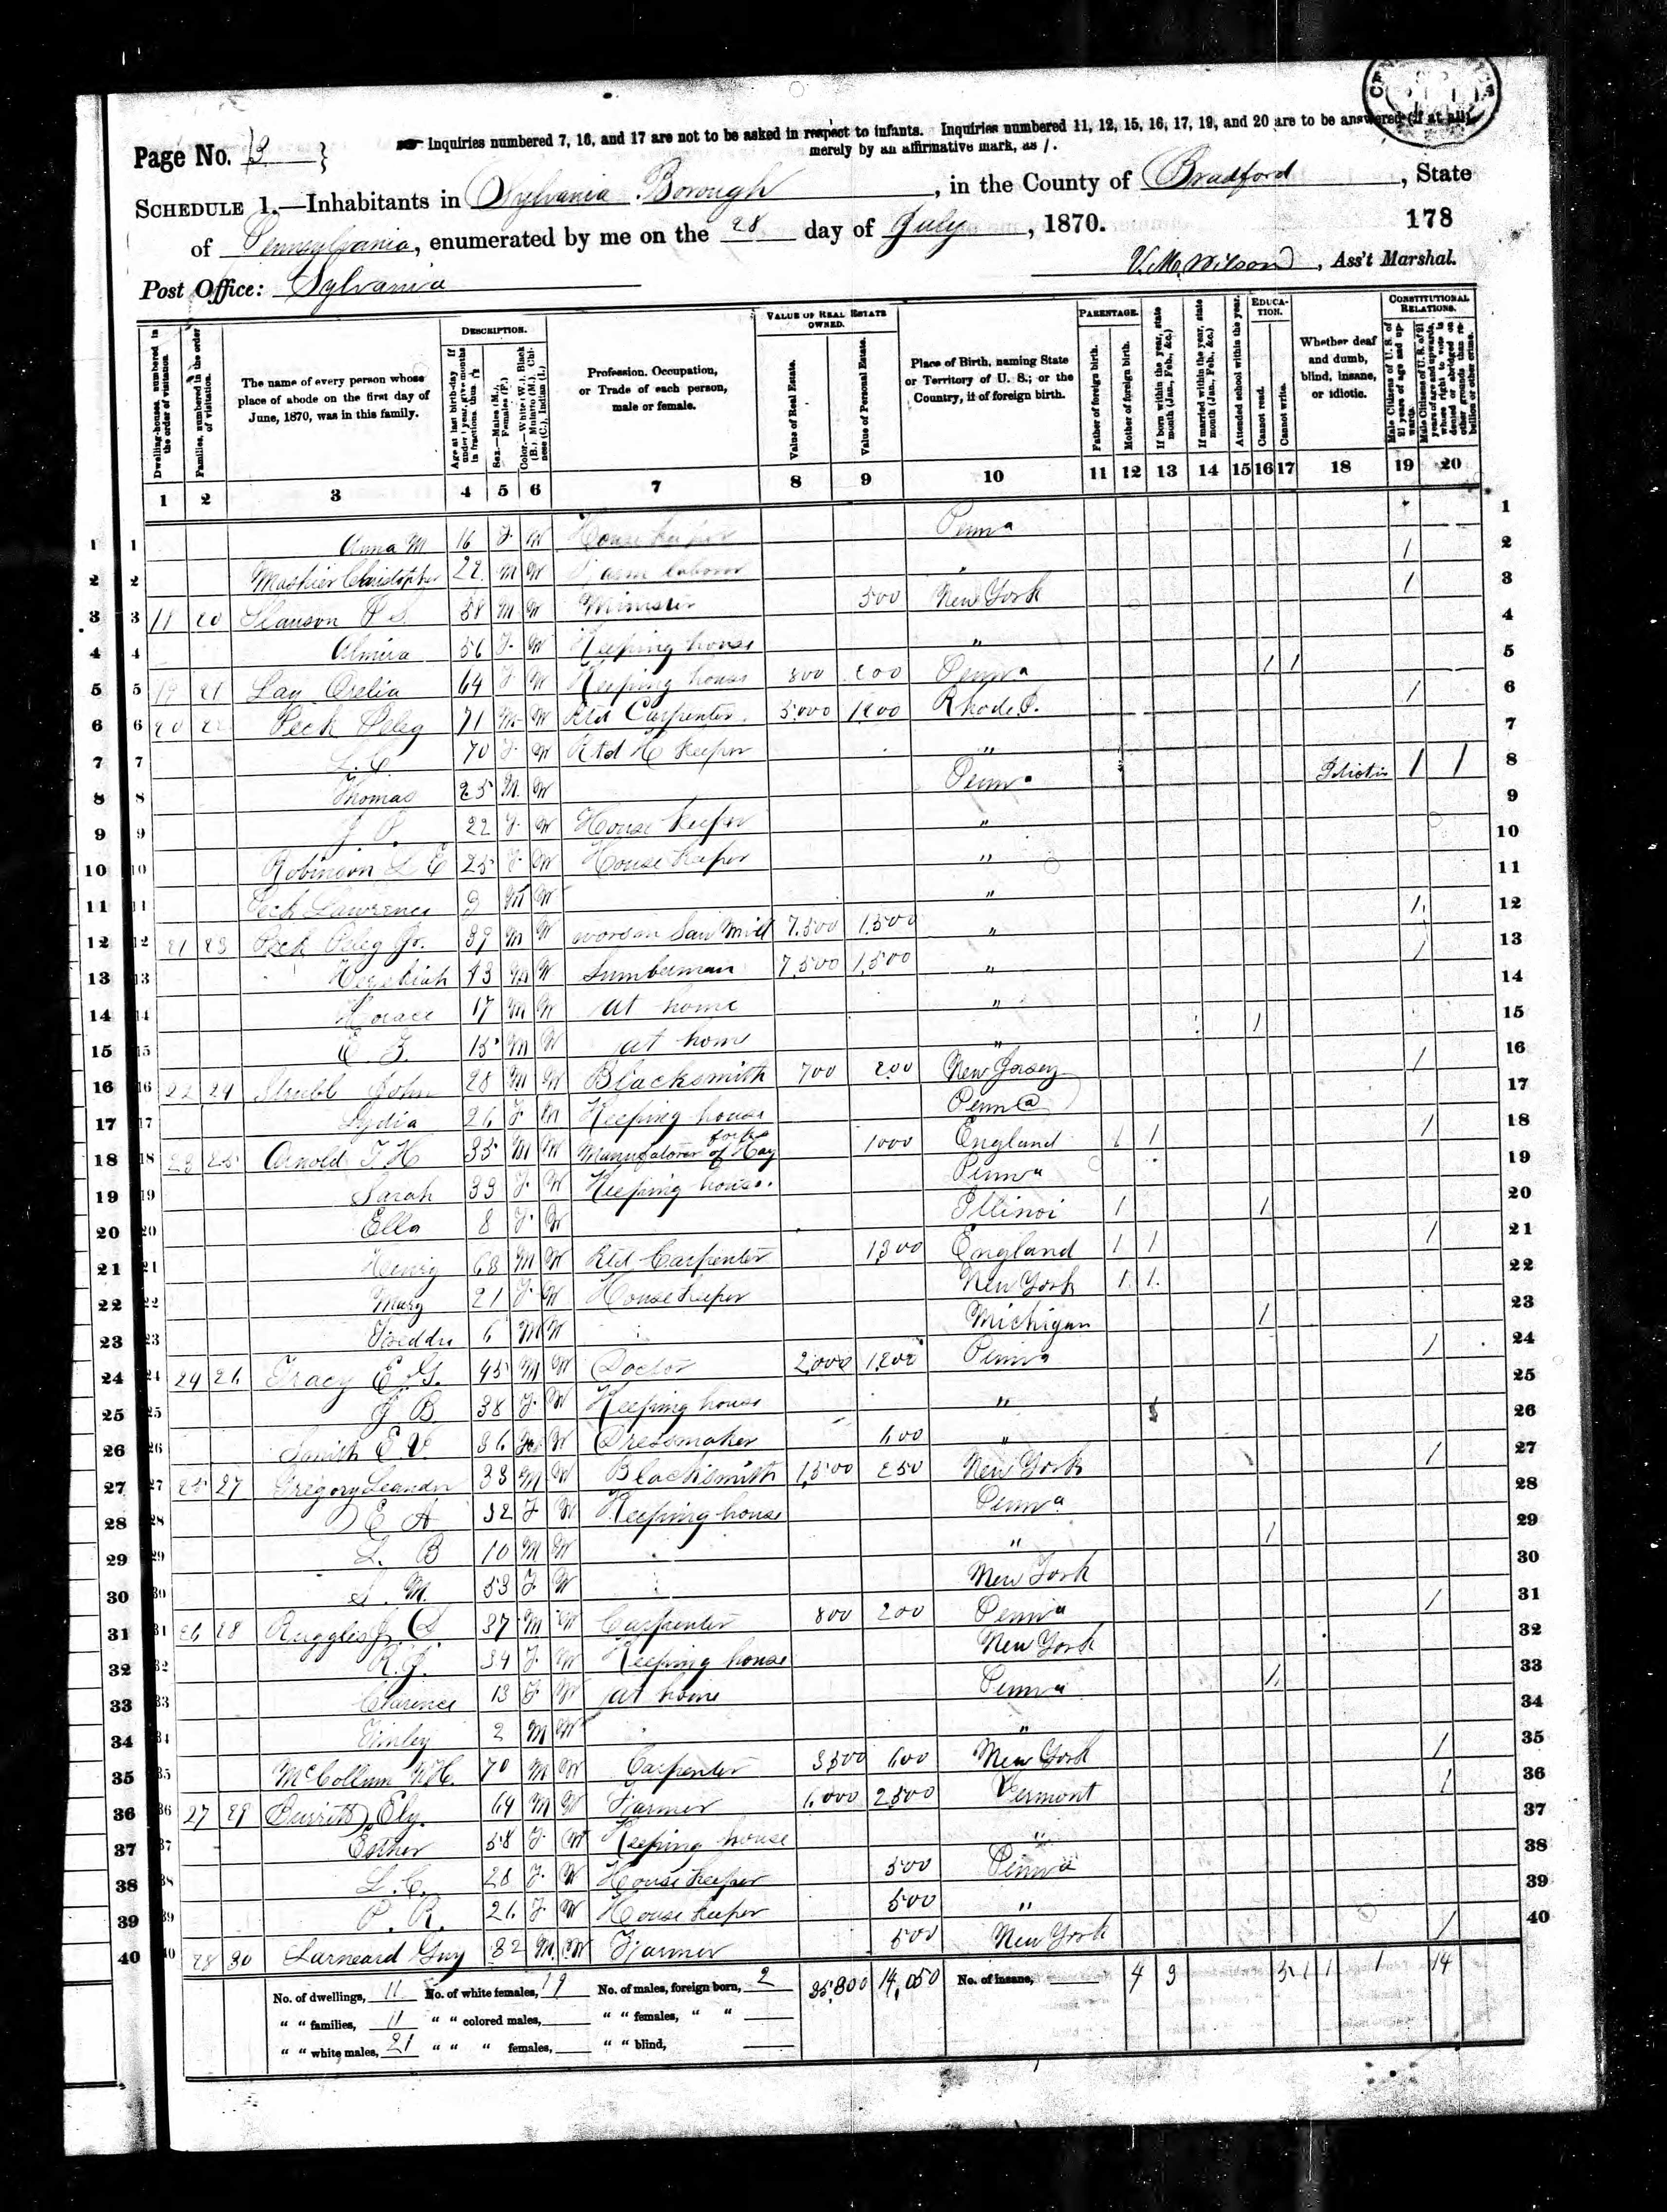 Page No. 3
Inquiries numbered 7, 16, and 17 are not to be asked in respect to infants. Inquiries numbered 11, 12, 15, 16, 17, 19, and 20 are to be answered (if at all)
merely by an affirmative mark, as /.
SCHEDULE 1.—Inhabitants in Sylvania Borough, in the County of Bradford, State
of Pennsylvania, enumerated by me on the 28 day of July, 1870.
178
Post Office: Sylvania
V. M. Wilson, Ass't Marshal.
Dwelling-houses, numbered in the order of visitation.
Families, numbered in the order of visitation.
The name of every person whose place of abode on the first day of June, 1870, was in this family.
DESCRIPTION.
Age at last birth-day. If under 1 year, give months in fractions, thus
Sex.—Males (M.), Females (F.)
Color.—White (W.), Black (B.), Mulatto (M.), Chinese (C.), Indian (I.)
Profession, Occupation, or Trade of each person, male or female.
VALUE OF REAL ESTATE OWNED.
Value of Real Estate.
Value of Personal Estate.
Place of Birth, naming State or Territory of U. S.; or the Country, if of foreign birth.
PARENTAGE.
Father of foreign birth.
Mother of foreign birth.
If born within the year, state month (Jan., Feb., &c.)
If married within the year, state month (Jan., Feb., &c.)
Attended school within the year.
EDUCATION.
Cannot read.
Cannot write.
Whether deaf and dumb, blind, insane, or idiotic.
CONSTITUTIONAL RELATIONS.
Male Citizens of U. S. of 21 years of age and upwards.
Male Citizens of U. S. of 21 years of age and upwards, whose right to vote is denied or abridged on other grounds than rebellion or other crime.
1 2 3 4 5 6 7 8 9 10 11 12 13 14 15 16 17 18 19 20
1 Anna M 16 F W House Keeper Penna
2 Christopher 22 M W Farm laborer " /
3 18 20 Slauson 58 M W Minister 500 New York /
4 Almira 56 F W Keeping house "
5 19 21 Lay Orelia 64 F W Keeping house 800 Penna / /
6 20 22 Peck Peleg 71 M W Rtd Carpenter 5000 Rhode I. /
7 70 F W Rtd H Keeper "
8 Thomas 25 M W Penna Idiotic / /
9 22 F W House Keeper "
10 Robinson L E 25 F W House Keeper "
11 Peck Lawrence 9 M W "
12 21 23 Peck Peleg Jr. 39 M W Saw Mill 7,500 1,500 " /
13 43 M W Lumberman 7,500 1,500 " /
14 Horace 17 M W at home "
15 15 M W at home " /
16 22 24 John 28 M W Blacksmith 700 200 New Jersey /
17 Lydia 26 F W Keeping house Penna
18 23 25 Arnold 35 M W Manufatorer of Hay forks 1000 England / / /
19 Sarah 33 F W Keeping house Penna
20 Ella 8 F W Illinoi / /
21 Henry 68 M W Rtd Carpenter 1300 England / / /
22 Mary 21 F W House Keeper New York / /
23 6 M W Michigan /
24 24 26 Tracy E G. 45 M W Doctor 2,000 Penna /
25 J B. 38 F W Keeping house "
26 Smith 36 W Dressmaker 600 "
27 25 27 Gregory Leander 33 M W Blacksmith 1,500 250 New York /
28 E A 32 F W Keeping house Penna
29 L. B 10 M W " /
30 M. 53 F W New York
31 26 28 Ruggles 37 M W Carpenter 800 200 Penna /
32 34 F W Keeping house New York
33 Clarence 13 F W at home Penna /
34 2 M W "
35 McCollum 70 M W Carpenter 600 New York /
36 27 29 Burritt Ely. 64 M W Farmer 6,000 2,500 Vermont /
37 Esther 58 F W Keeping house "
38 L. C. 28 F W House Keeper 500 Penna
39 P. R. 26 F W House Keeper 500 "
40 28 30 Larneard Guy 32 M W Farmer 500 New York /
No. of dwellings, 11 No. of white females, 19 No. of males, foreign born, 2 14,050 No. of insane, 4 3 5 1 1 1 14
" " families, 11 " " colored males, " " females, " "
" " white males, 21 " " " females, " " blind,